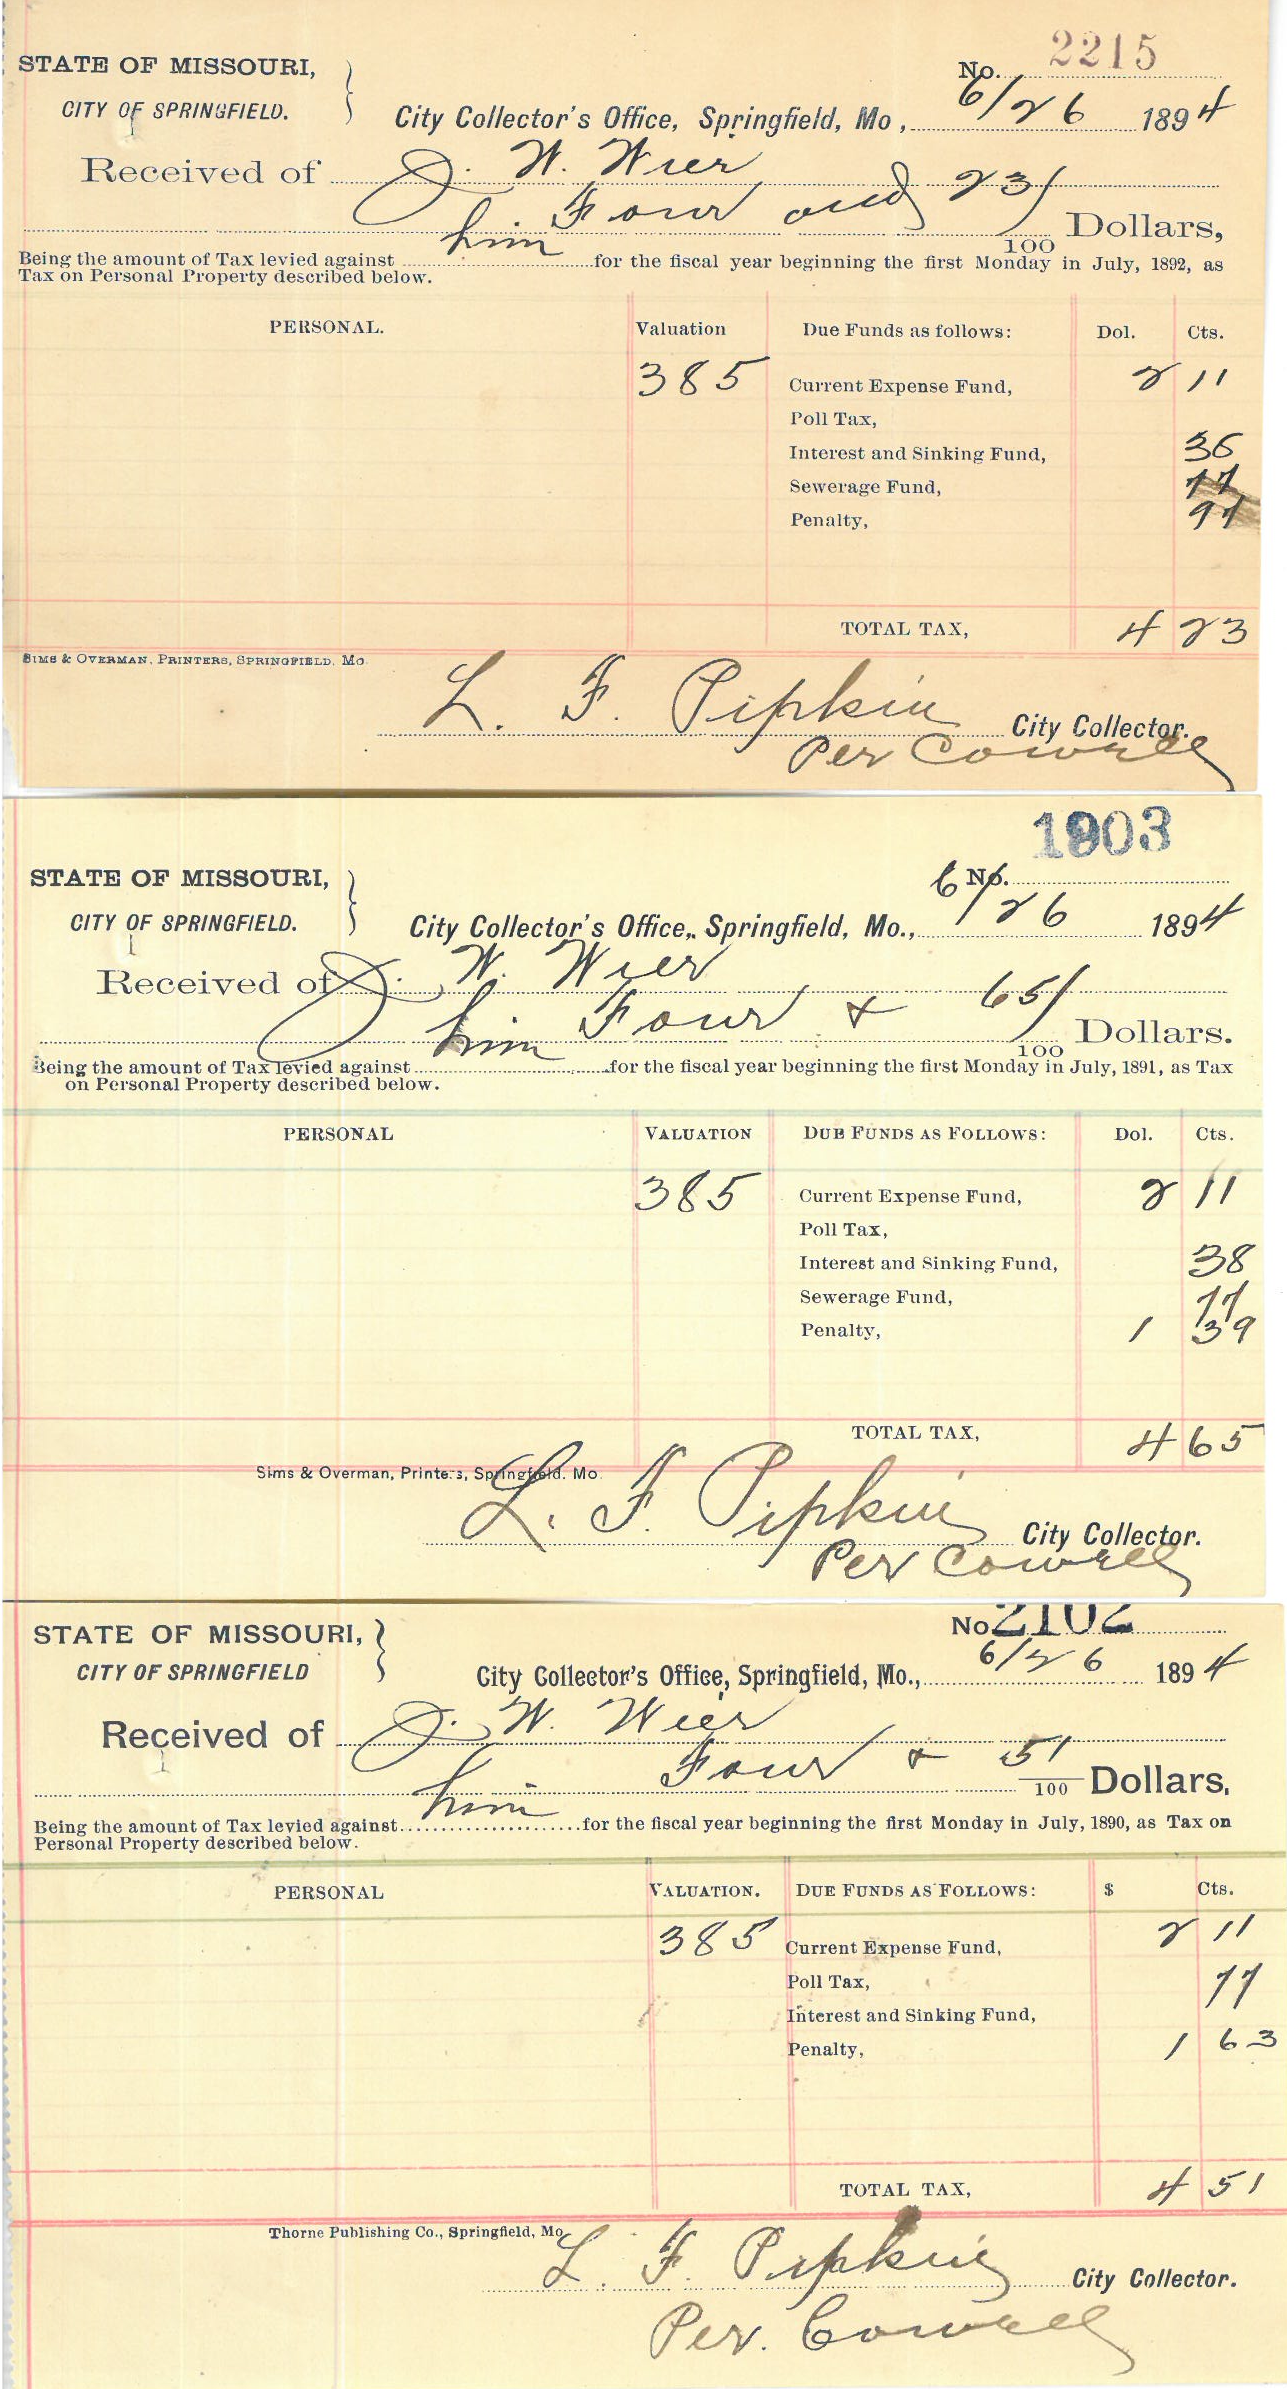 No. 2215
STATE OF MISSOURI,
CITY OF SPRINGFIELD.
City Collector's Office, Springfield, Mo., 6/26 1894
Received of J. W. Wier
Four and 23/100 Dollars,
Being the amount of Tax levied against him for the fiscal year beginning the first Monday in July, 1892, as
Tax on Personal Property described below.
PERSONAL. Valuation Due Funds as follows: Dol. Cts.
385 Current Expense Fund, 2 11
Poll Tax,
Interest and Sinking Fund, 38
Sewerage Fund, 77
Penalty, 97
TOTAL TAX, 4 23
SIMS & OVERMAN, PRINTERS, SPRINGFIELD, MO.
L. F. Pipkin City Collector.
Per Cowell
1903
STATE OF MISSOURI, No.
CITY OF SPRINGFIELD.
City Collector's Office, Springfield, Mo., 6/26 1894
Received of J. W. Wier
Four & 65/100 Dollars.
Being the amount of Tax levied against him for the fiscal year beginning the first Monday in July, 1891, as Tax
on Personal Property described below.
PERSONAL VALUATION DUE FUNDS AS FOLLOWS: Dol. Cts.
385 Current Expense Fund, 2 11
Poll Tax,
Interest and Sinking Fund, 38
Sewerage Fund, 77
Penalty, 1 39
TOTAL TAX, 4 65
Sims & Overman, Printers, Springfield. Mo.
L. F. Pipkin City Collector.
Per Cowell
No 2102
STATE OF MISSOURI,
CITY OF SPRINGFIELD
City Collector's Office, Springfield, Mo., 6/26 1894
Received of J. W. Wier
Four & 51/100 Dollars,
Being the amount of Tax levied against him for the fiscal year beginning the first Monday in July, 1890, as Tax on
Personal Property described below.
PERSONAL VALUATION. DUE FUNDS AS FOLLOWS: $ Cts.
385 Current Expense Fund, 2 11
Poll Tax, 77
Interest and Sinking Fund,
Penalty, 1 63
TOTAL TAX, 4 51
Thorne Publishing Co., Springfield, Mo.
L. F. Pipkin City Collector.
Per. Cowell